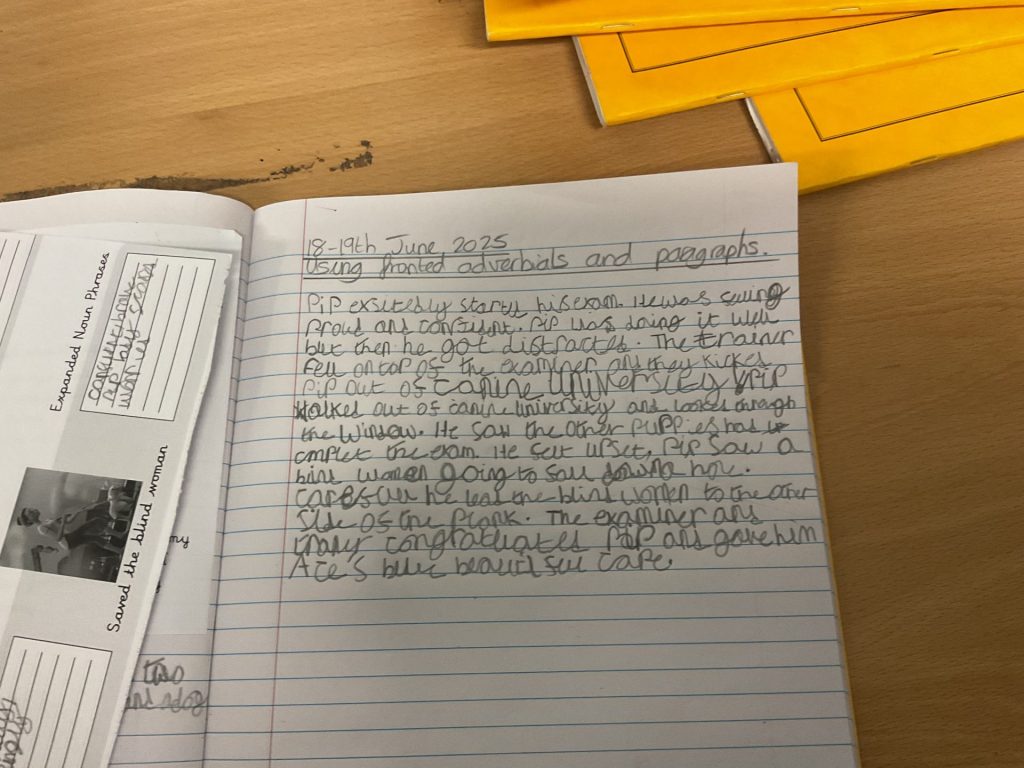 18-19th June 2025
Using fronted adverbials and paragraphs.
Pip exsitedly starts his exam. He was
proud and confident. Pip was doing it well
but then he got distracted. The trainer
fell on top of the examiner and they kicked
Pip out of canine university Pip
walked out of canine university and looked through
the window. He saw the other puppies had
complet the exam. He felt upset, Pip saw a
blind women going to fall down a hole.
he lead the blind women to the other
side of the plank. The examiner and
congratulates Pip and gave him
Ace's blue cape.
Expanded Noun Phrases
Saved the blind woman
two
and a dog